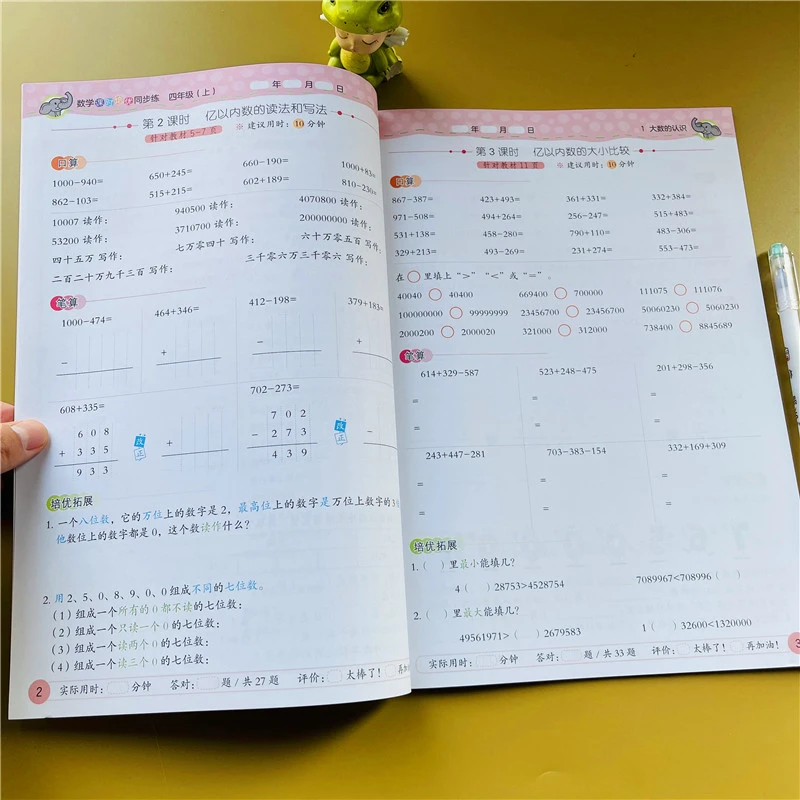 数学 同步练 四年级（上）
年 月 日
第 2 课时 亿以内数的读法和写法
针对教材 5-7 页 ※ 建议用时：10 分钟
口算
1000−940= 650+245= 660−190= 1000+83=
862−103= 515+215= 602+189= 810−230=
10007 读作： 940500 读作： 4070800 读作：
53200 读作： 3710700 读作： 200000000 读作：
四十五万 写作： 七万零四十 写作： 六十万零五百 写作：
二百二十万九千三百 写作： 三千零六万三千零六 写作：
笔算
1000−474= 464+346= 412−198= 379+183=
−
+
−
+
608+335= 702−273=
6 0 8
+ 3 3 5
9 3 3
改正
+
7 0 2
− 2 7 3
4 3 9
改正
−
培优拓展
1. 一个八位数，它的万位上的数字是 2，最高位上的数字是万位上数字的 3
他数位上的数字都是 0，这个数读作什么？
2. 用 2、5、0、8、9、0、0 组成不同的七位数。
（1）组成一个所有的 0 都不读的七位数：
（2）组成一个只读一个 0 的七位数：
（3）组成一个读两个 0 的七位数：
（4）组成一个读三个 0 的七位数：
2 实际用时： 分钟 答对： 题 / 共 27 题 评价： 太棒了！ 再加油
年 月 日 1 大数的认识
第 3 课时 亿以内数的大小比较
针对教材 11 页 ※ 建议用时：10 分钟
口算
867−387= 423+493= 361+331= 332+384=
971−508= 494+264= 256−247= 515+483=
531+138= 458−280= 790+110= 483−306=
329+213= 493−269= 231+274= 553−473=
在○里填上“>”“<”或“=”。
40040 ○ 40400 669400 ○ 700000 111075 ○ 111076
100000000 ○ 99999999 23456700 ○ 23456700 50060230 ○ 5060230
2000200 ○ 2000020 321000 ○ 312000 738400 ○ 8845689
笔算
614+329−587 523+248−475 201+298−356
= = =
= = =
243+447−281 703−383−154 332+169+309
= = =
= = =
培优拓展
1.（ ）里最小能填几？
4（ ）28753>4528754 7089967<708996（ ）
2.（ ）里最大能填几？
49561971>（ ）2679583 1（ ）32600<1320000
实际用时： 分钟 答对： 题 / 共 33 题 评价： 太棒了！ 再加油！ 3